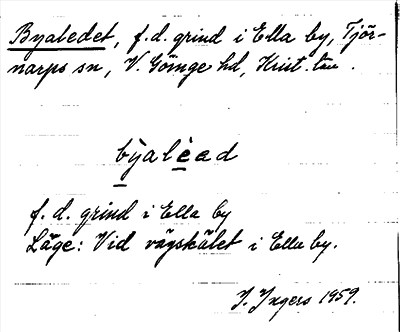 Byaledet, f.d. grind i Ella by, Tjör-
narps sn, V. Göinge hd, Krist. län.
bỳalèad
f. d. grind i Ella by
Läge: Vid vägskälet i Ella by.
J. Ingers 1959.